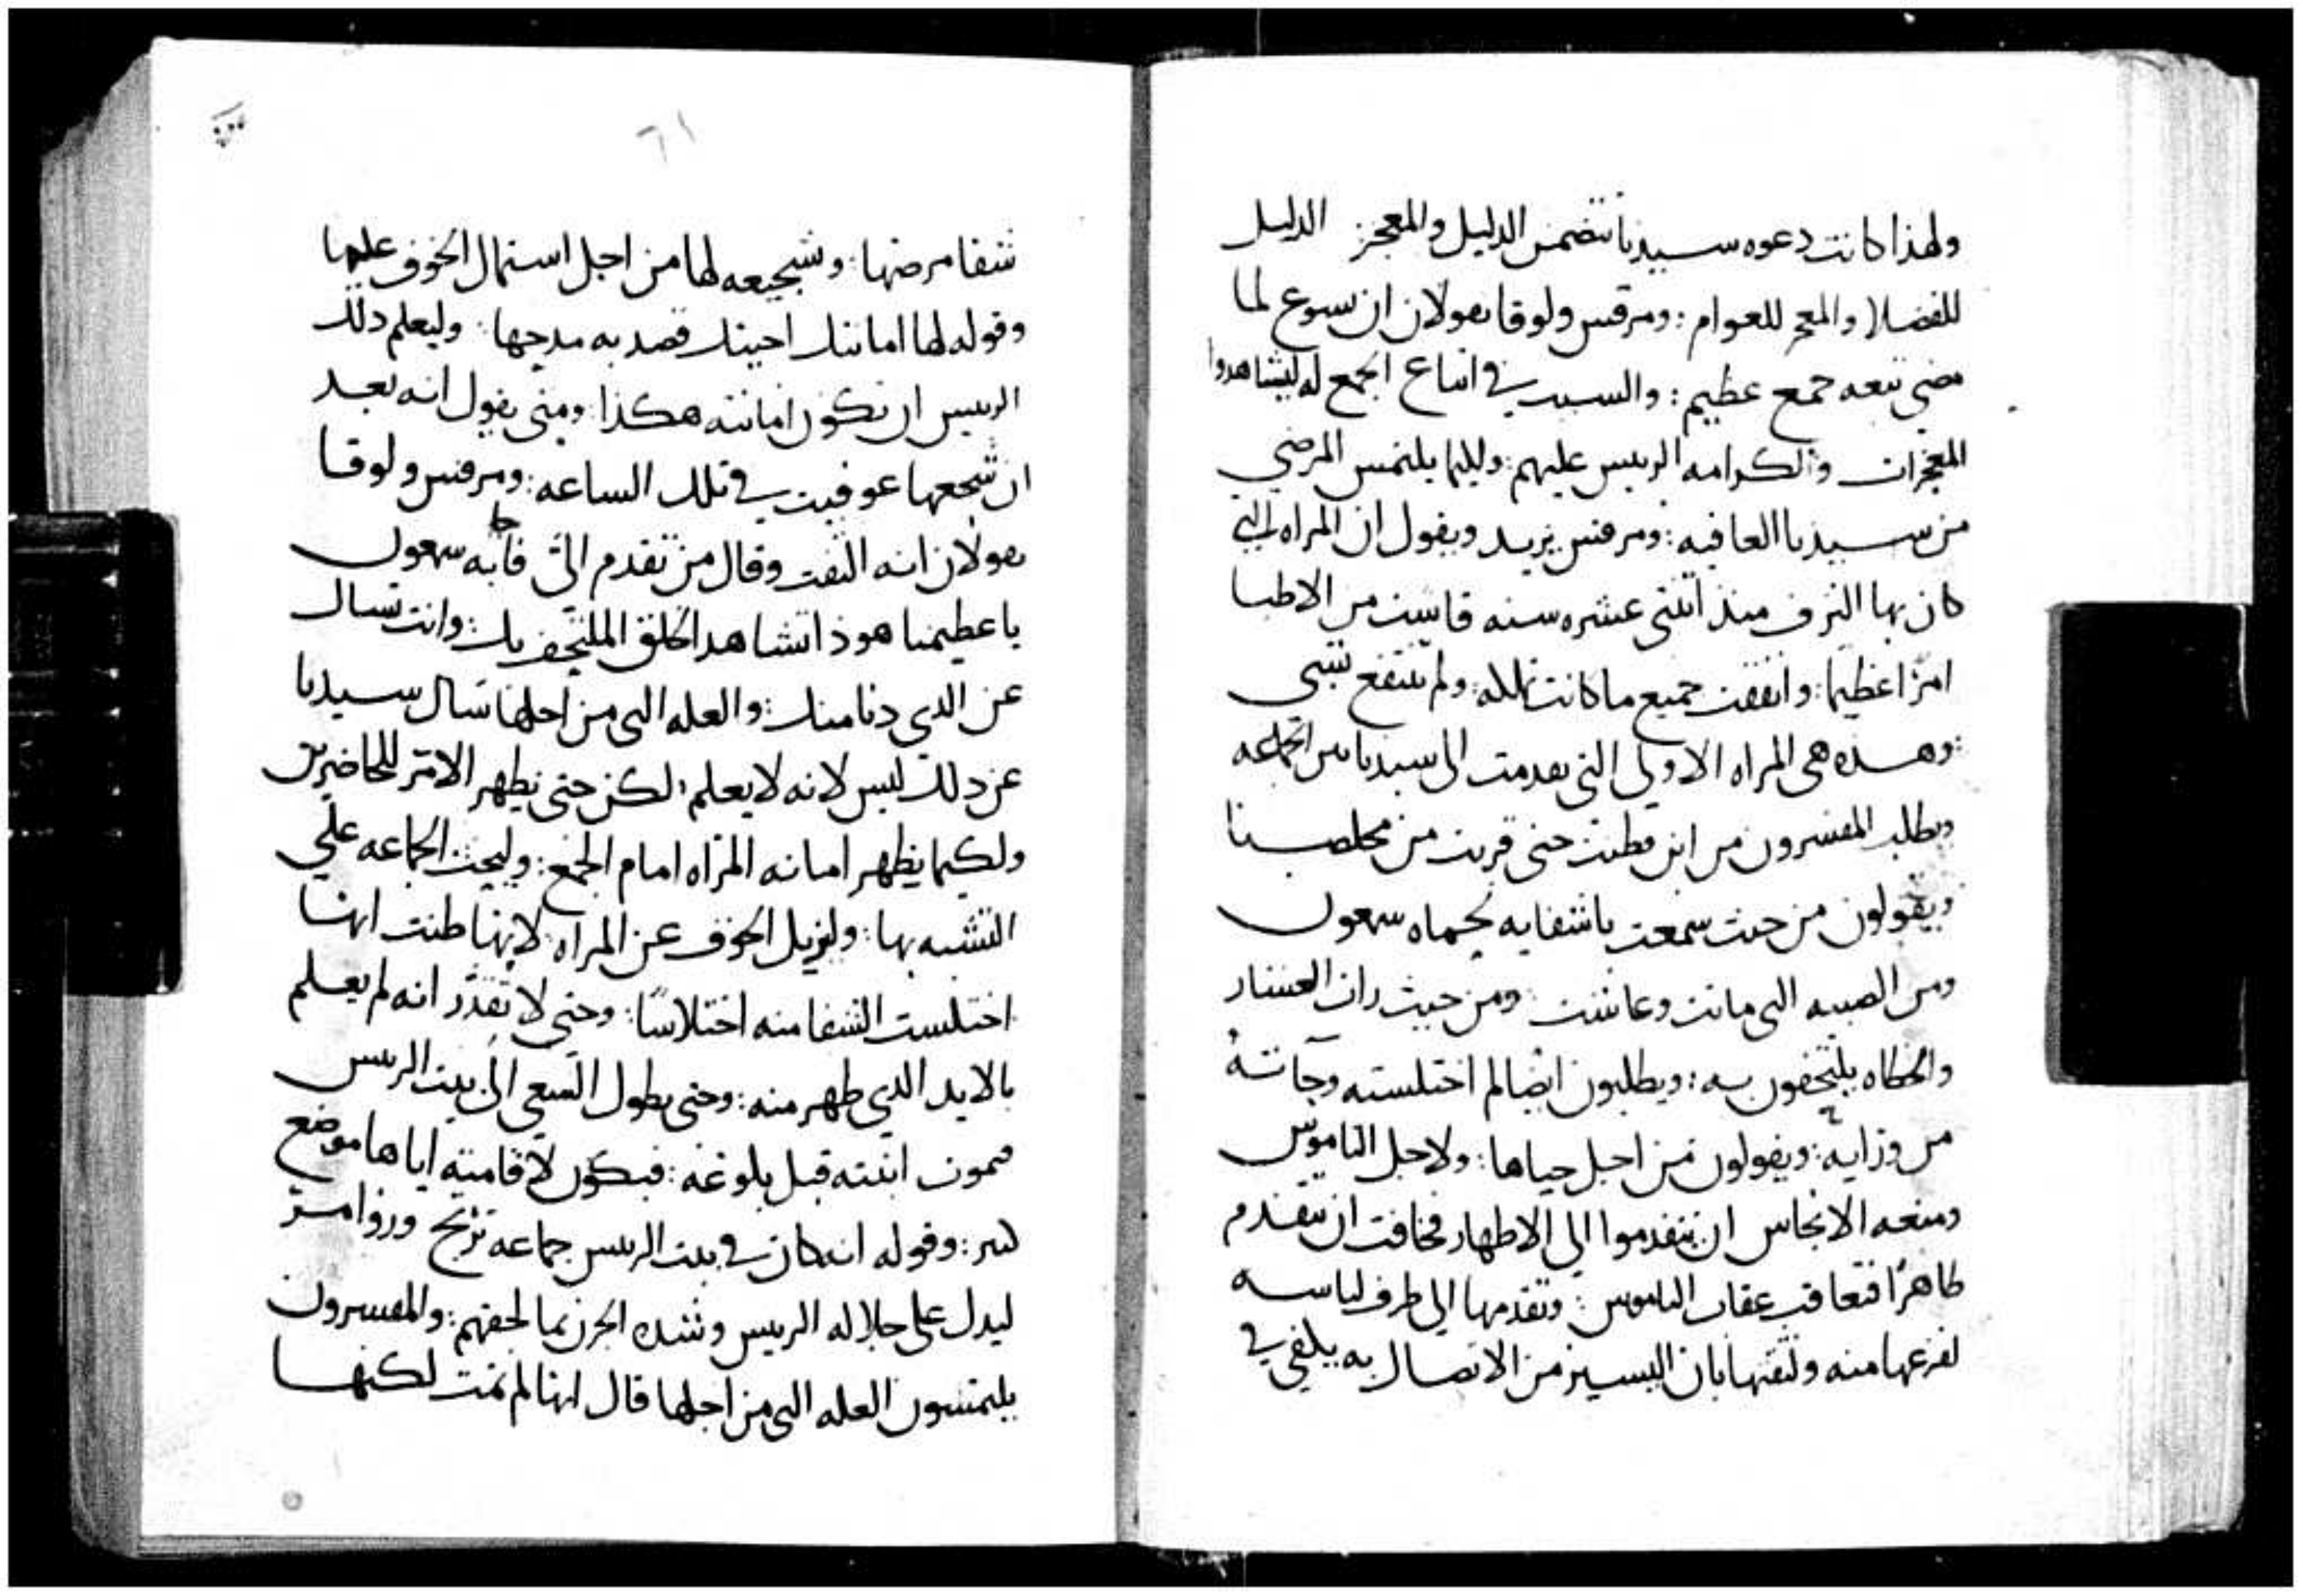 ولهذا كانت دعوه سيدنا تتضمن الدليل والمعجز الدليل
للفضلا والمعجز للعوام : ومرقس ولوقا يقولان ان يسوع لما
مضى تبعه جمع عظيم : والسبب في اتباع الجمع له ليشاهدوا
المعجزات ولكرامه الرييس عليهم : وليلا يلتمس المرضي
من سيدنا العافيه : ومرقس يزيد ويقول ان المراه التي
كان بها النزف منذ اثنتى عشره سنه قاست من الاطبا
امرًا عظيمًا : وانفقت جميع ما كانت تملكه : ولم تنتفع بشي
: وهذه هي المراه الاولي التي تقدمت الى سيدنا من الجماعه
ويطلب المفسرون من اين فطنت حتى قربت من مخلصنا
ويقولون من حيث سمعت باشفايه لحماه سمعون
ومن الصبيه التي ماتت وعاشت : ومن حيث رات العشار
والخطاه يلتحفون به : ويطلبون ايضا لم اختلسته وجآته
من ورايه : ويقولون من اجل حياها : ولاجل الناموس
ومنعه الانجاس ان يتقدموا الي الاطهار فخافت ان تتقدم
ظاهرًا فتعاقب عقاب الناموس : وتقدمها الي طرف لباسه
لفزعها منه وثقتها بان اليسير من الاتصال به يكفي في
٦١
شفا مرضها : وتشجيعه لها من اجل استمال الخوف عليها
وقوله لها امانتك احيتك قصد به مدحها : وليعلم دلك
الرييس ان تكون امانته هكذا : ومتى يقول انه بعد
ان شجعها عوفيت في تلك الساعه : ومرقس ولوقا
يقولان انه التفت وقال من تقدم الىّ فاجابه سمعون
يا عظيمنا هوذا تشاهد الخلق الملتحف بك : وانت تسال
عن الدي دنا منك : والعله التي من اجلها سال سيدنا
عن دلك ليس لانه لا يعلم : لكن حتى يظهر الامر للحاضرين
ولكيما يظهر امانه المراه امام الجمع : وليحث الجماعه علي
التشبه بها : وليزيل الخوف عن المراه : لانها ظنت انها
اختلست الشفا منه اختلاسًا : وحتى لا تقدّر انه لم يعلم
بالايد الدي ظهر منه : وحتى يطول السعي الى بيت الرييس
فتموت ابنته قبل بلوغه : فيكون لاقامته اياها موضع
كبير : وقوله انه كان في بيت الرييس جماعه ترتج
ليدل على جلاله الرييس وشده الحزن بما لحقهم : والمفسرون
يلتمسون العله التي من اجلها قال انها لم تمت لكنها